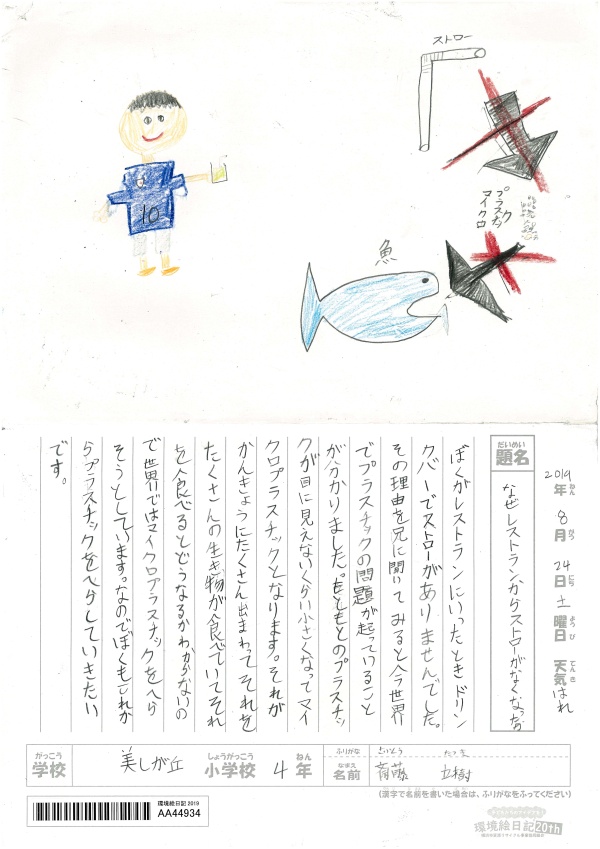 ストロー
マイクロ
プラスチック
魚
10
2019年ねん 8月がつ 24日にち 土曜日ようび 天気てんき はれ
だいめい
題名
なぜレストランからストローがなくなったか
ぼくがレストランにいったときドリン
クバーでストローがありませんでした。
その理由を兄に聞いてみると今世界
でプラスチックの問題が起っていること
が分かりました。もともとのプラスチッ
クが目に見えないくらい小さくなってマイ
クロプラスチックとなります。それが
かんきょうにたくさん出まわってそれを
たくさんの生き物が食べていてそれ
を食べるとどうなるかわからないの
で世界ではマイクロプラスチックをへら
そうとしています。なのでぼくもこれか
らプラスチックをへらしていきたい
です。
がっこう
学校
美しが丘
しょうがっこう
小学校
4
ねん
年
ふりがな
さいとう たつき
なまえ
名前
斉藤 立樹
(漢字で名前を書いた場合は、ふりがなをふってください)
環境絵日記 2019
AA44934
環境絵日記 20th